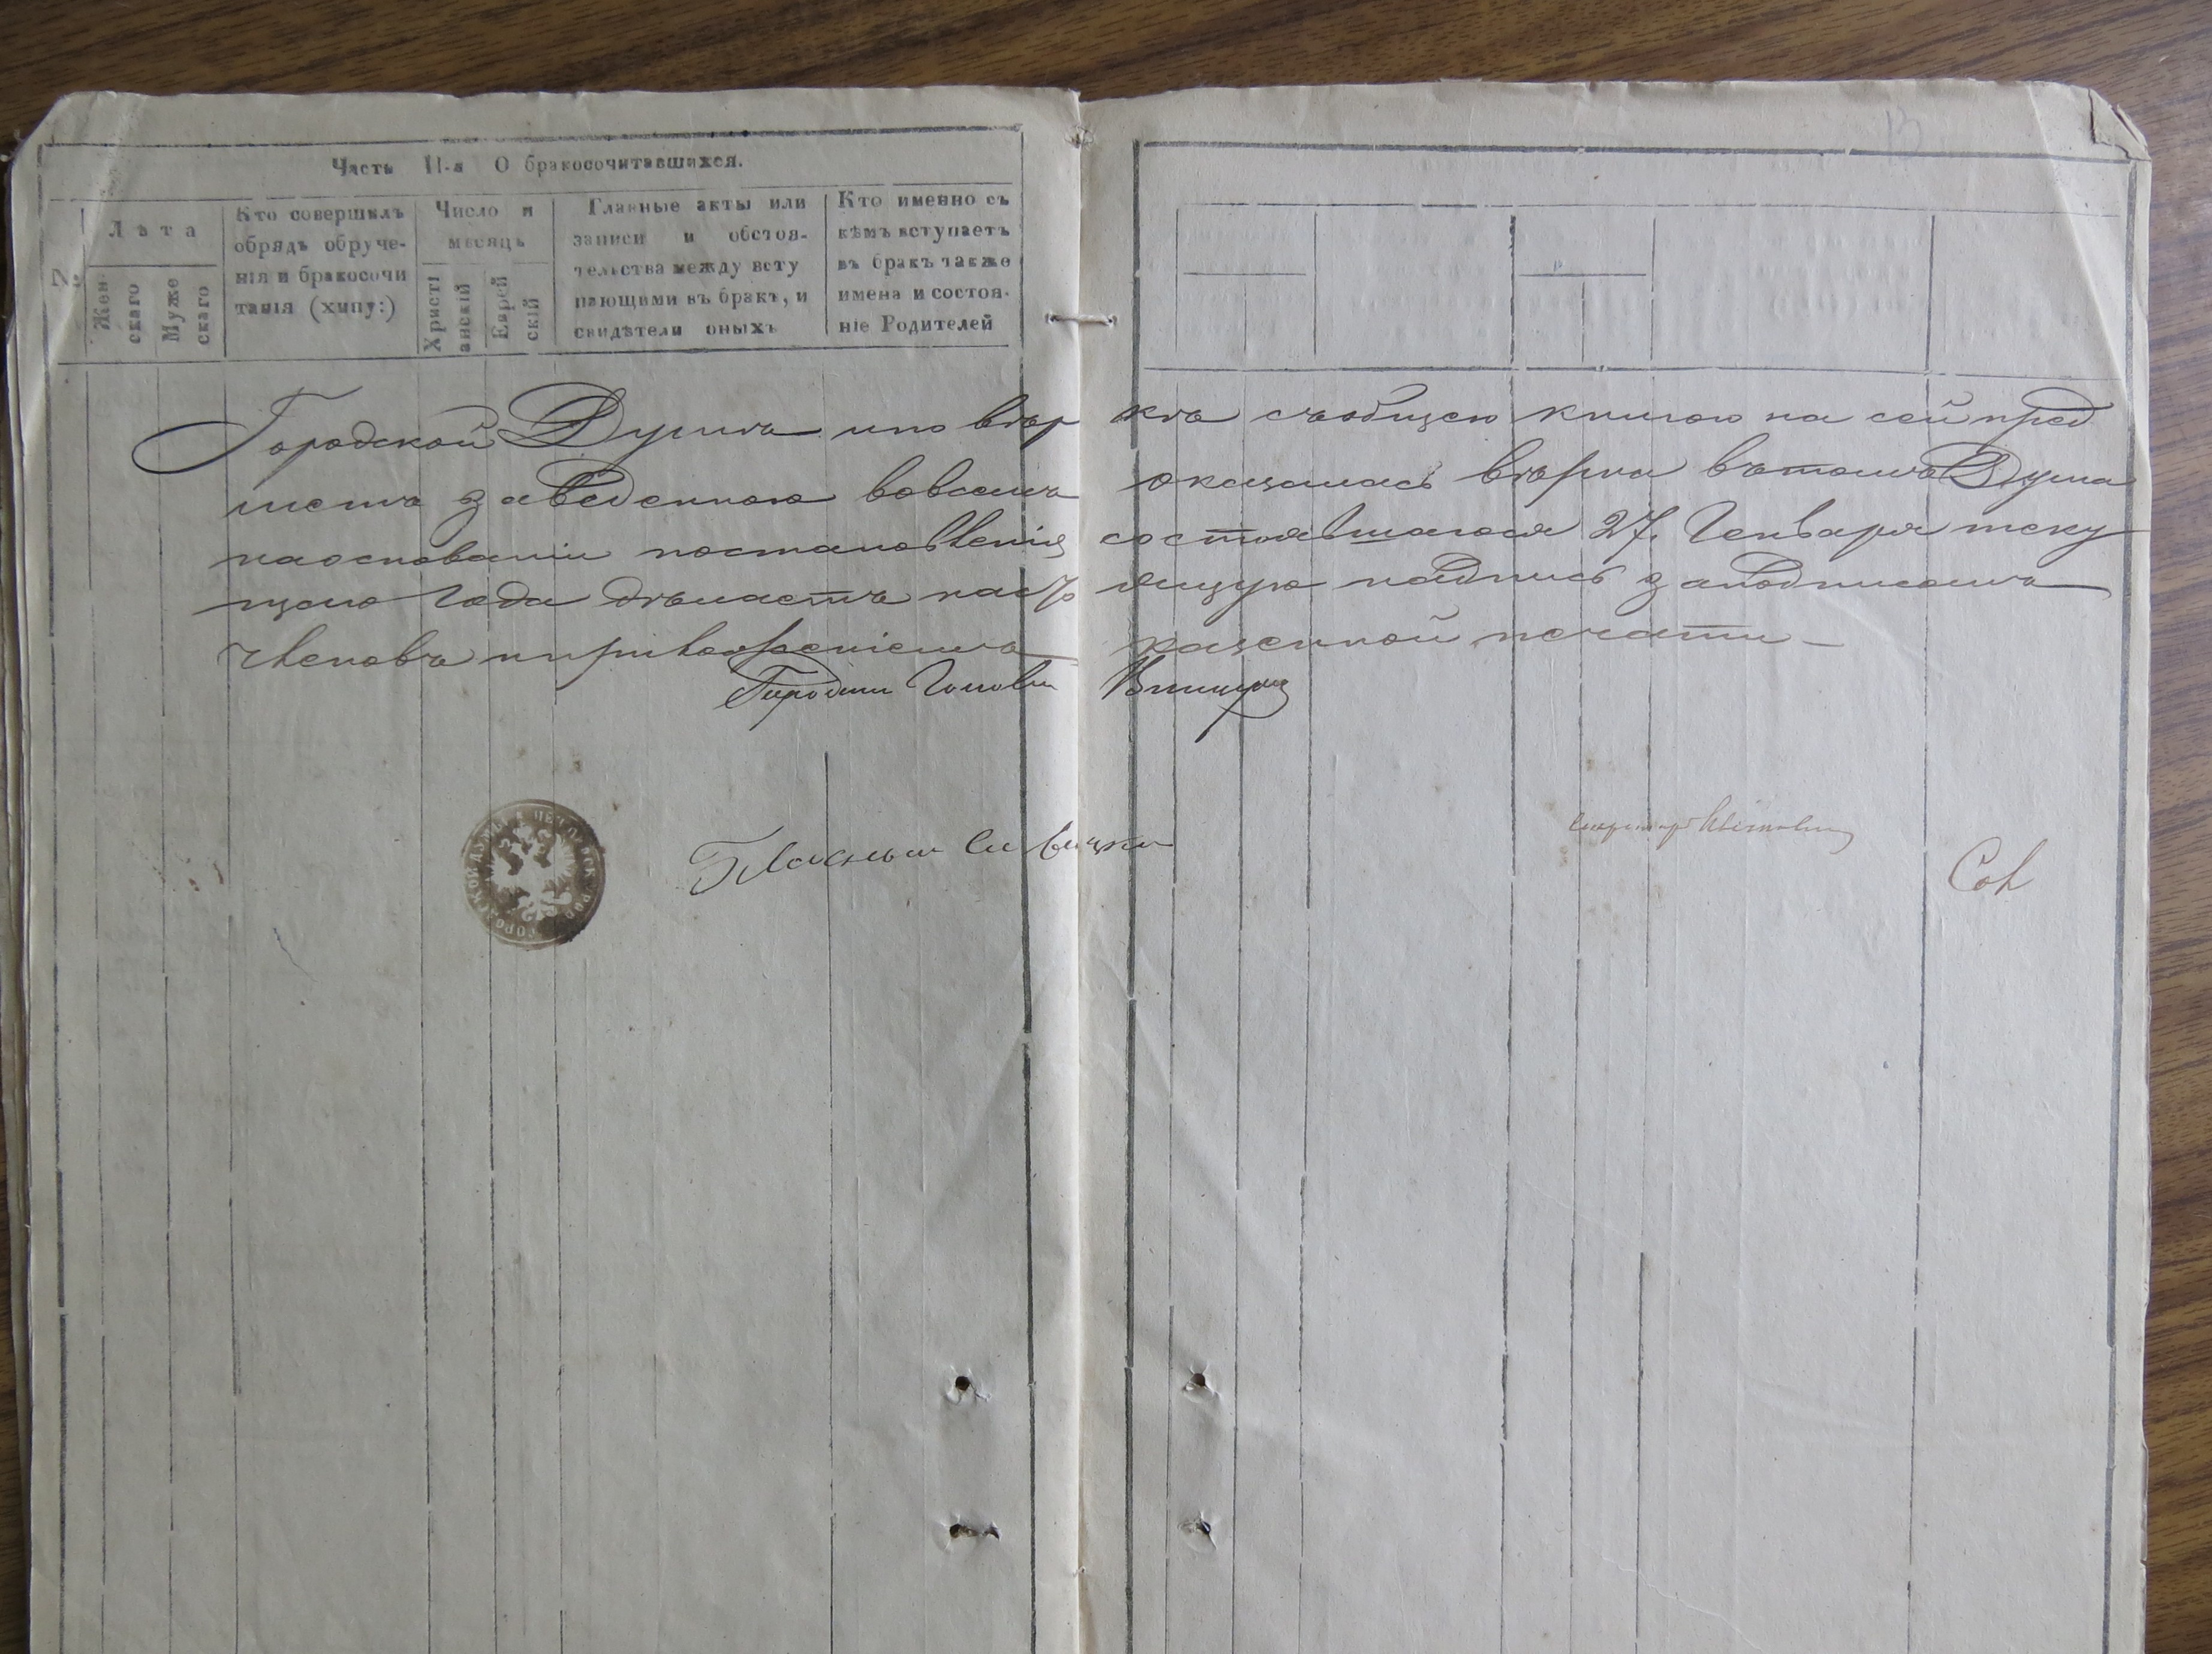 Часть II-я О бракосочитавшихся.
№
Лѣта
Женскаго
Мужескаго
Кто совершилъ
обрядъ обруче-
нія и бракосочи
танія (хупу:)
Число и
месяцъ
Христі
анскій
Еврей
скій
Главные акты или
записи и обстоя-
тельства между всту
пающими въ бракъ, и
свидѣтели оныхъ
Кто именно съ
кѣмъ вступаетъ
въ бракъ также
имена и состоя-
ніе Родителей
13
Городской Думѣ и по въ свѣркѣ съ общею книгою на сей пред
метъ заведенною во всемъ оказалась вѣрна въ томъ Дума
на основаніи постановленія состоявшагося 27. Генваря теку
щаго года дѣлаетъ настоящую надпись за подписомъ
членовъ и приложеніемъ казенной печати
Городской Голова
Гласный
Секретарь